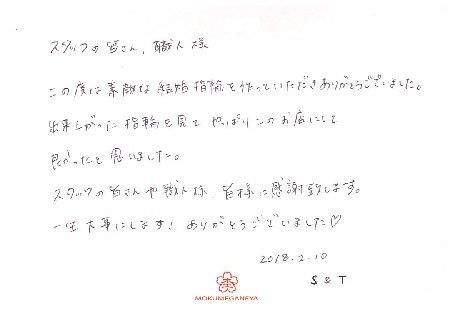 スタッフの皆さん、職人様
この度は素敵な結婚指輪を作っていただきありがとうございました。
出来上がった指輪を見て やっぱりこのお店にして
良かったと思いました。
スタッフの皆さんや職人様、皆様に感謝致します。
一生大事にします! ありがとうございました♡
2018.2.10
S & T
MOKUMEGANEYA